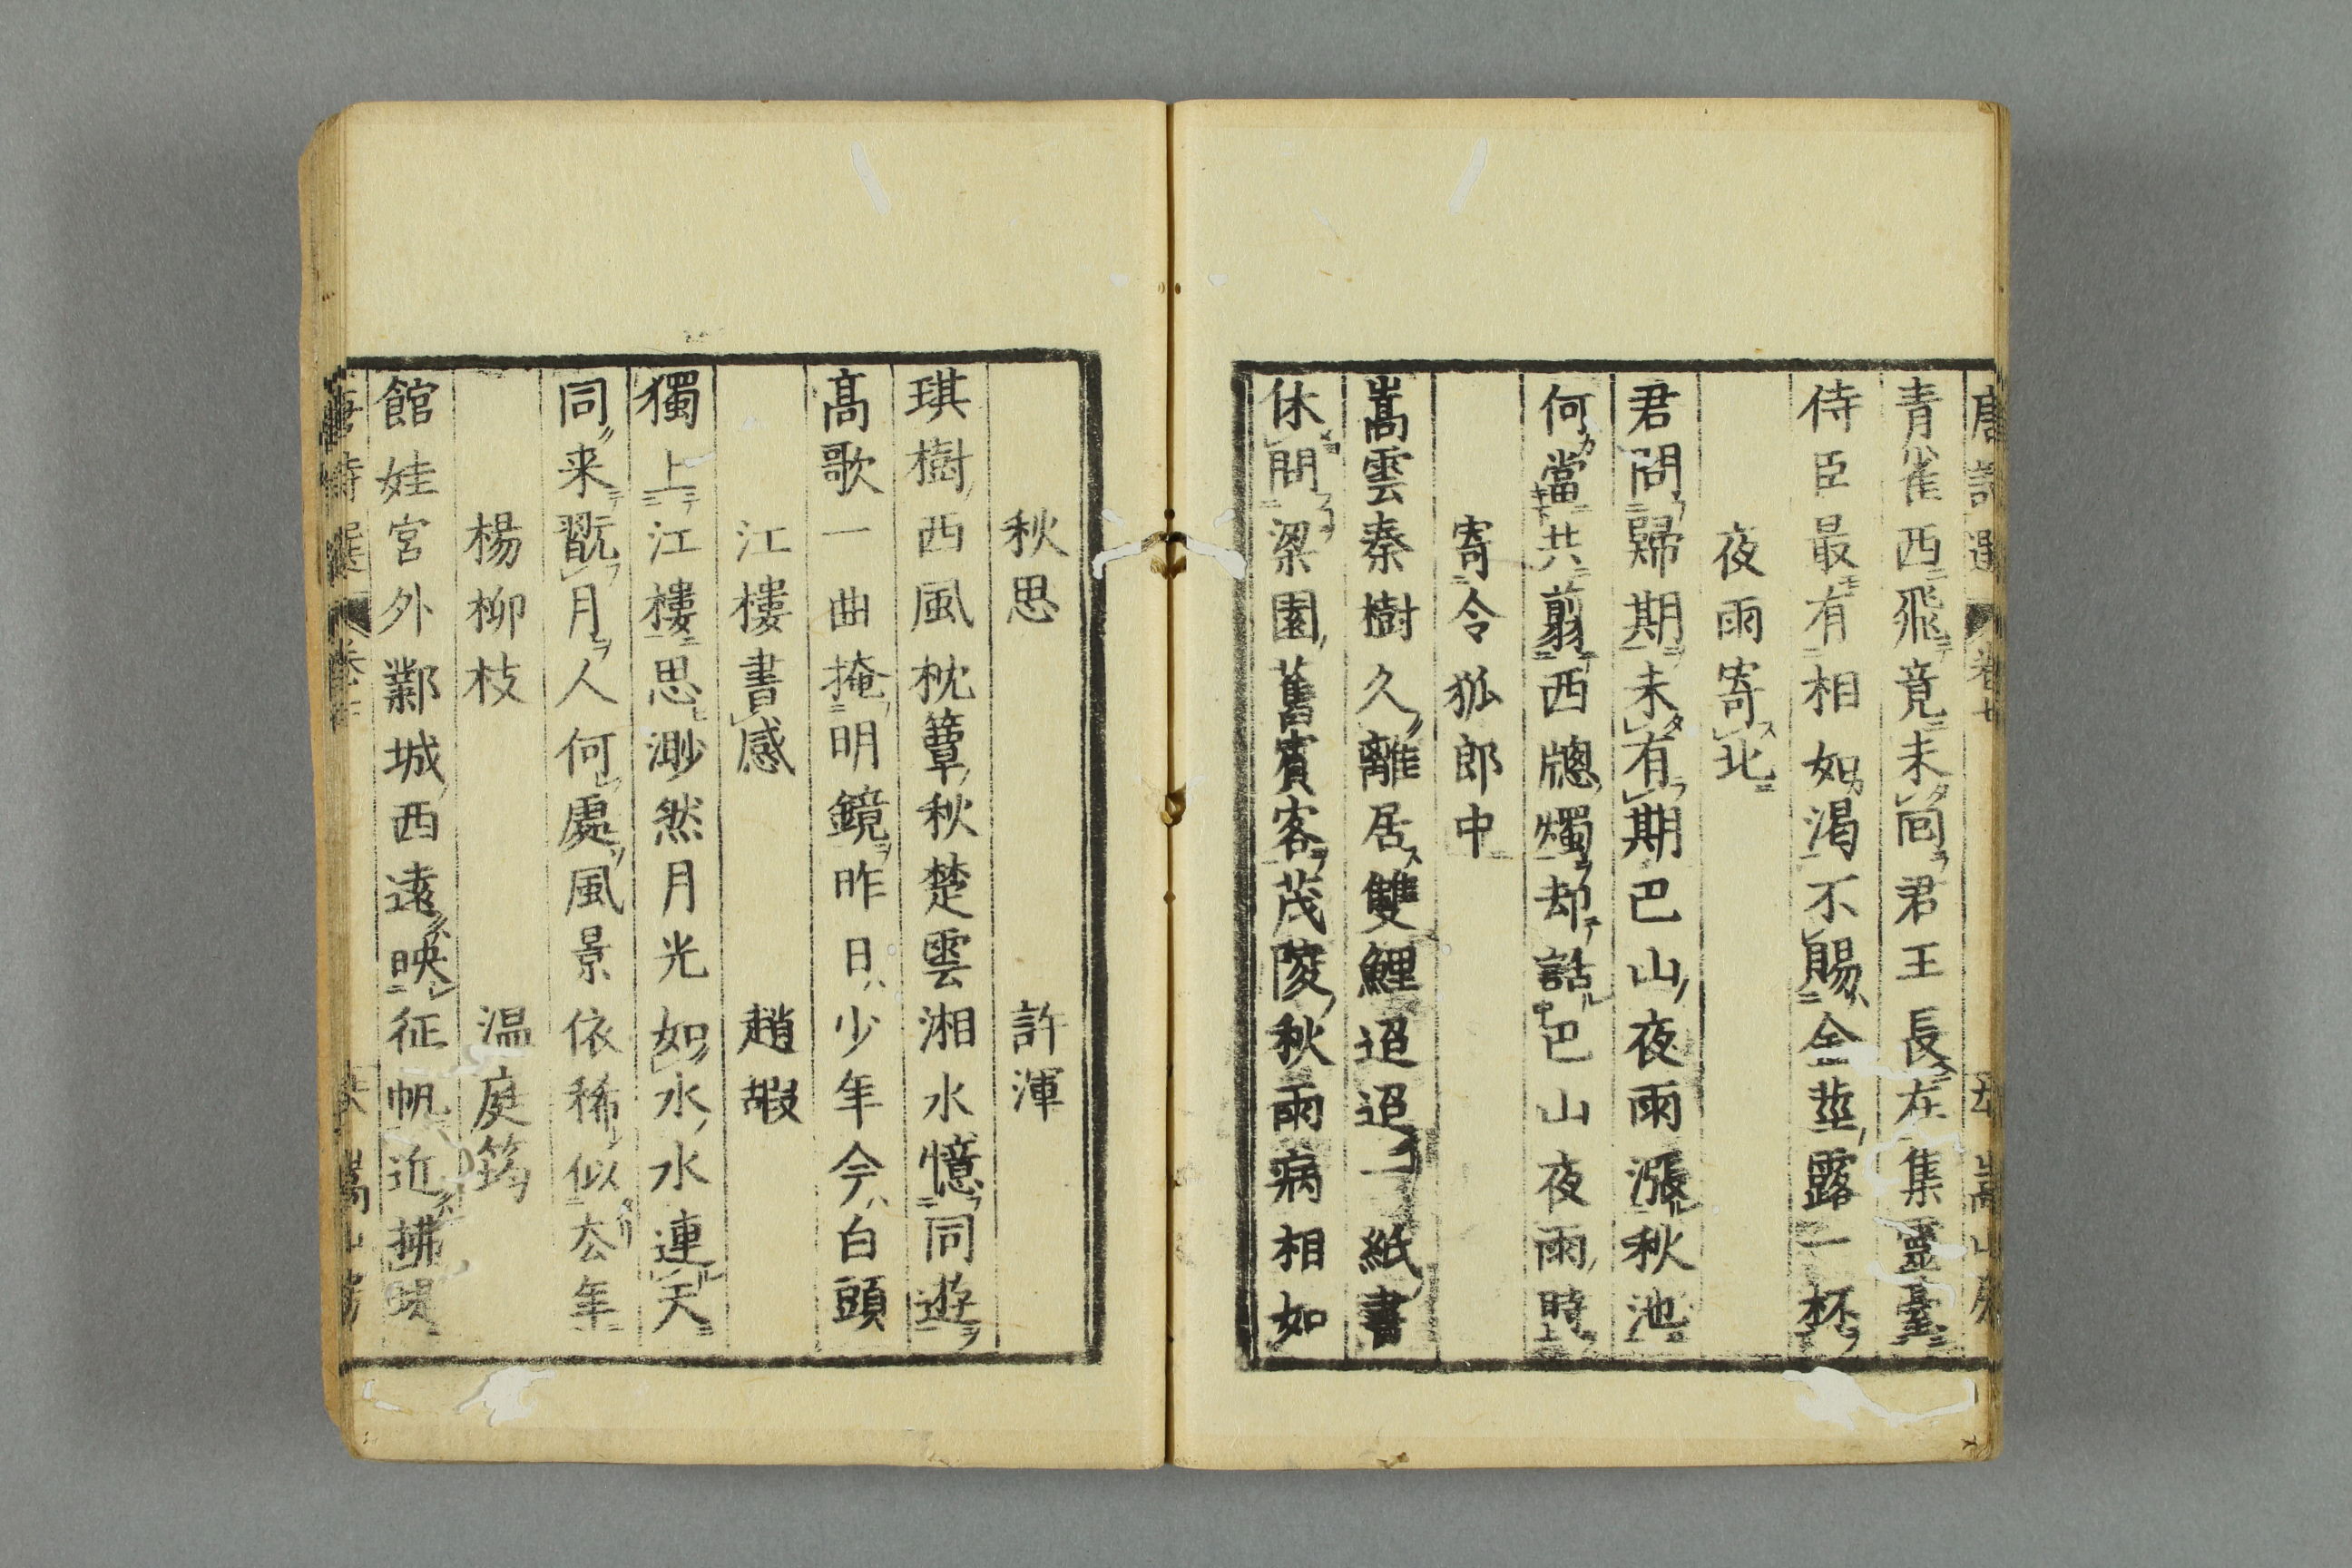 青雀西飛竟未囘君王長在集靈臺
侍臣最有相如渇不賜金莖露一杯
夜雨寄北
君問歸期未有期巴山夜雨漲秋池
何當共剪西牕燭却話巴山夜雨時
寄令狐郎中
嵩雲秦樹久離居雙鯉迢迢一紙書
休問梁園舊賓客茂陵秋雨病相如
秋思 許渾
琪樹西風枕簟秋楚雲湘水憶同遊
高歌一曲掩明鏡昨日少年今白頭
江樓書感 趙嘏
獨上江樓思渺然月光如水水連天
同来翫月人何處風景依稀似厺年
楊柳枝 温庭筠
館娃宮外鄴城西遠映征帆近拂堤